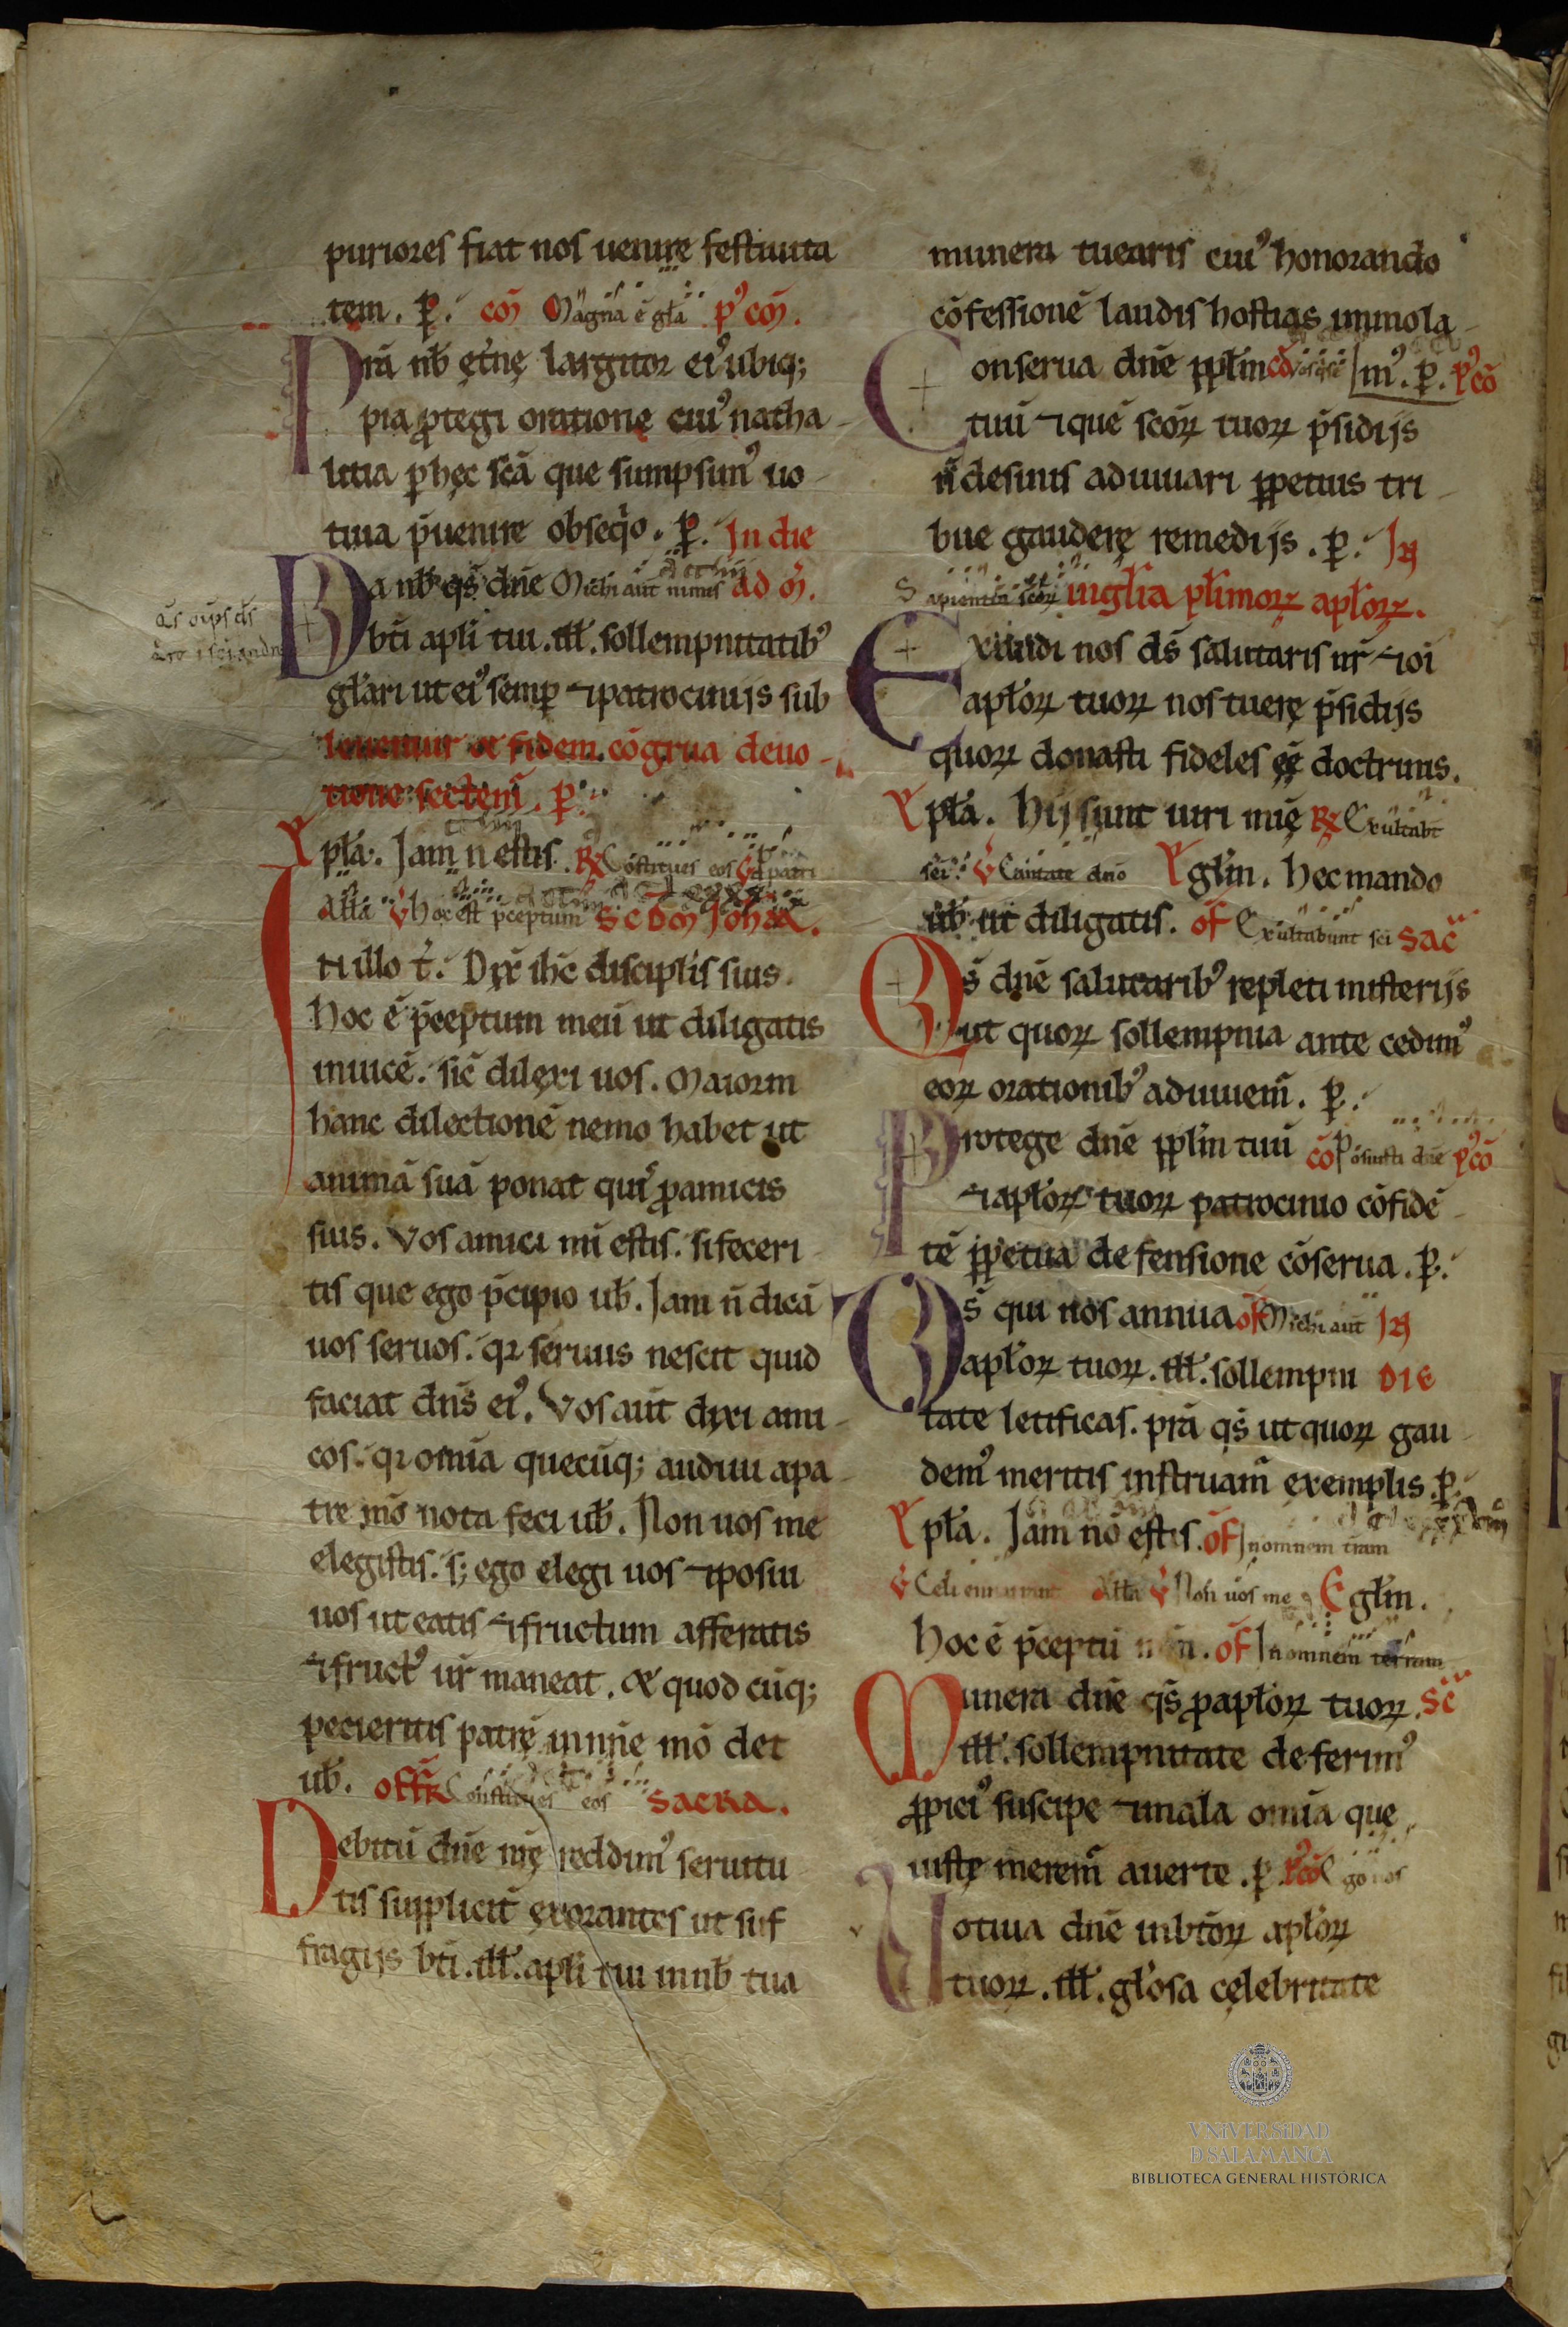 puriores fiat nos uenire festiuita
tem. ꝑ. cō Magna ē gła p'cō.
Prā nb̄ ęt̄nę largitor ei' ubiq;
pia ꝓtegi orationę cui' natha
litia ꝑ hęc scā que sumpsim' uo
tiua p̄uenire obseq̄o. ꝑ. In die
Da nb̄ qs̄ dn̄e Michi aut̄ nimis ad m̄.
bt̄i apli tui .ill̄. sollempnitatib'
głari ut ei' semꝑ ⁊ patrociniis sub
leuemur & fidem cōgrua deuo
tione sectem̄. ꝑ.
Epła. Iam n̄ estis. R̄ Cōstitues eos v̄ ꝑ patri
Ałła v̄ hoc est p̄ceptum scdm Iohā.
In illo t̄. Dix̄ ih̄c discipłis suis.
Hoc ē p̄ceptum meū ut diligatis
inuicē. sic̄ dilexi uos. Maiorem
hanc dilectionē nemo habet ut
animā suā ponat quis ꝓ amicis
suis. Vos amici mi estis. si feceri
tis que ego p̄cipio ub̄. Iam n̄ dicā
uos seruos. qꝛ seruus nescit quid
faciat dn̄s ei'. Vos aut̄ dixi ami
cos. qꝛ om̄ia quecūq; audiui a pa
tre mō nota feci ub̄. Non uos me
elegistis. s; ego elegi uos ⁊ posui
uos ut eatis ⁊ fructum afferatis
⁊ fruct' ur̄ maneat. & quodcūq;
pecieritis patrę in nn̄e mō det
ub̄. offr̄ Constitues eos sacra.
Debitū dn̄e nrę reddim' seruitu
tis suppliciter exorantes ut suf
fragiis bt̄i .ill̄. apli tui in nb̄ tua
munera tuearis cui' honorando
cōfessionē laudis hostias immola
Conserua dn̄e ppłm cō m'. ꝑ. p'cō
tuū ⁊ quē scōꝝ tuoꝝ p̄sidiis
n̄ desinis adiuuari ꝑpetuis tri
bue gauderę remediis. ꝑ. In
Sapientiā scōꝝ uiglia płimoꝝ apłoꝝ.
Exaudi nos ds̄ salutaris nr̄ ⁊
apłoꝝ tuoꝝ nos tuerę p̄sidiis
quoꝝ donasti fideles eę doctrinis.
Epła. Hii sunt uiri mię R̄ Exultabt̄
sci. v̄ Cantate dn̄o Egłm. hec mando
ub̄ ut diligatis. of Exultabunt sci sac̄
Qs̄ dn̄e salutarib' repleti misteriis
ut quoꝝ sollempnia ante cedim'
eoꝝ orationib' adiuuem̄. ꝑ.
Protege dn̄e ppłm tuū cō Posuisti dn̄e p'cō
⁊ apłoꝝ tuoꝝ patrocinio cōfidē
tē ꝑpetua defensione cōserua. ꝑ.
Ds̄ qui nos annua of Michi aut̄ In
apłoꝝ tuoꝝ .ill̄. sollempni die
tate letificas. prā qs̄ ut quoꝝ gau
dem' meritis instruam̄ exemplis. ꝑ.
Epła. Iam nō estis. of In omnem tr̄am
v̄ Celi enarrant Ałła v̄ Non uos me Egłm.
hoc ē p̄ceptū of In omnem terram
Munera dn̄e qs̄ ꝓ apłoꝝ tuoꝝ. sc̄
.ill̄. sollempnitate deferim'
ꝓpici' suscipe ⁊ mala om̄ia que
iustę merem̄ auerte. ꝑ. p'cō Ego uos
Votiua dn̄e in bt̄oꝝ apłoꝝ
tuoꝝ .ill̄. głosa cęlebritate
VNIVERSIDAD
D SALAMANCA
BIBLIOTECA GENERAL HISTÓRICA